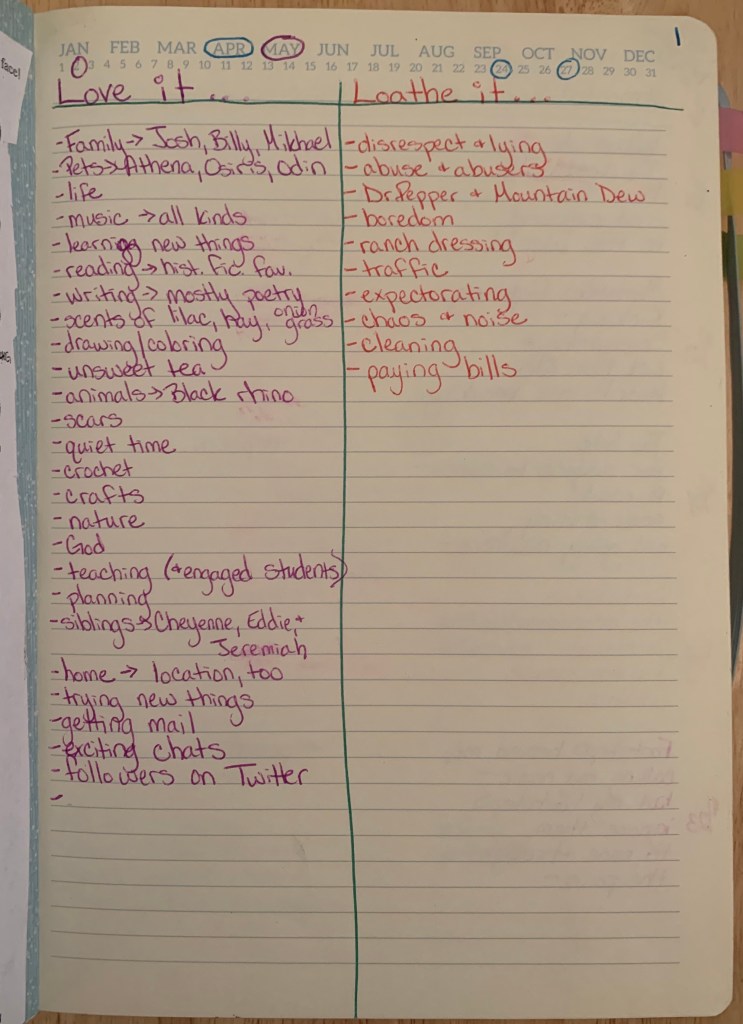 1
JAN FEB MAR APR MAY JUN JUL AUG SEP OCT NOV DEC
1 2 3 4 5 6 7 8 9 10 11 12 13 14 15 16 17 18 19 20 21 22 23 24 25 26 27 28 29 30 31
Love it...
-Family→ Josh, Billy, Mikhael
-Pets→Athena, Osiris, Odin
-life
-music →all kinds
-learning new things
-reading→hist. fic. fav.
-writing→ mostly poetry
-scents of lilac, hay, onion grass
-drawing/coloring
-unsweet tea
-animals→Black rhino
-scars
-quiet time
-crochet
-crafts
-nature
-God
-teaching (+engaged students)
-planning
-siblings→Cheyenne, Eddie, +
Jeremiah
-home → location, too
-trying new things
-getting mail
-exciting chats
-followers on Twitter
-
Loathe it...
-disrespect + lying
-abuse + abusers
-Dr.Pepper + Mountain Dew
-boredom
-ranch dressing
-traffic
-expectorating
-chaos + noise
-cleaning
-paying bills